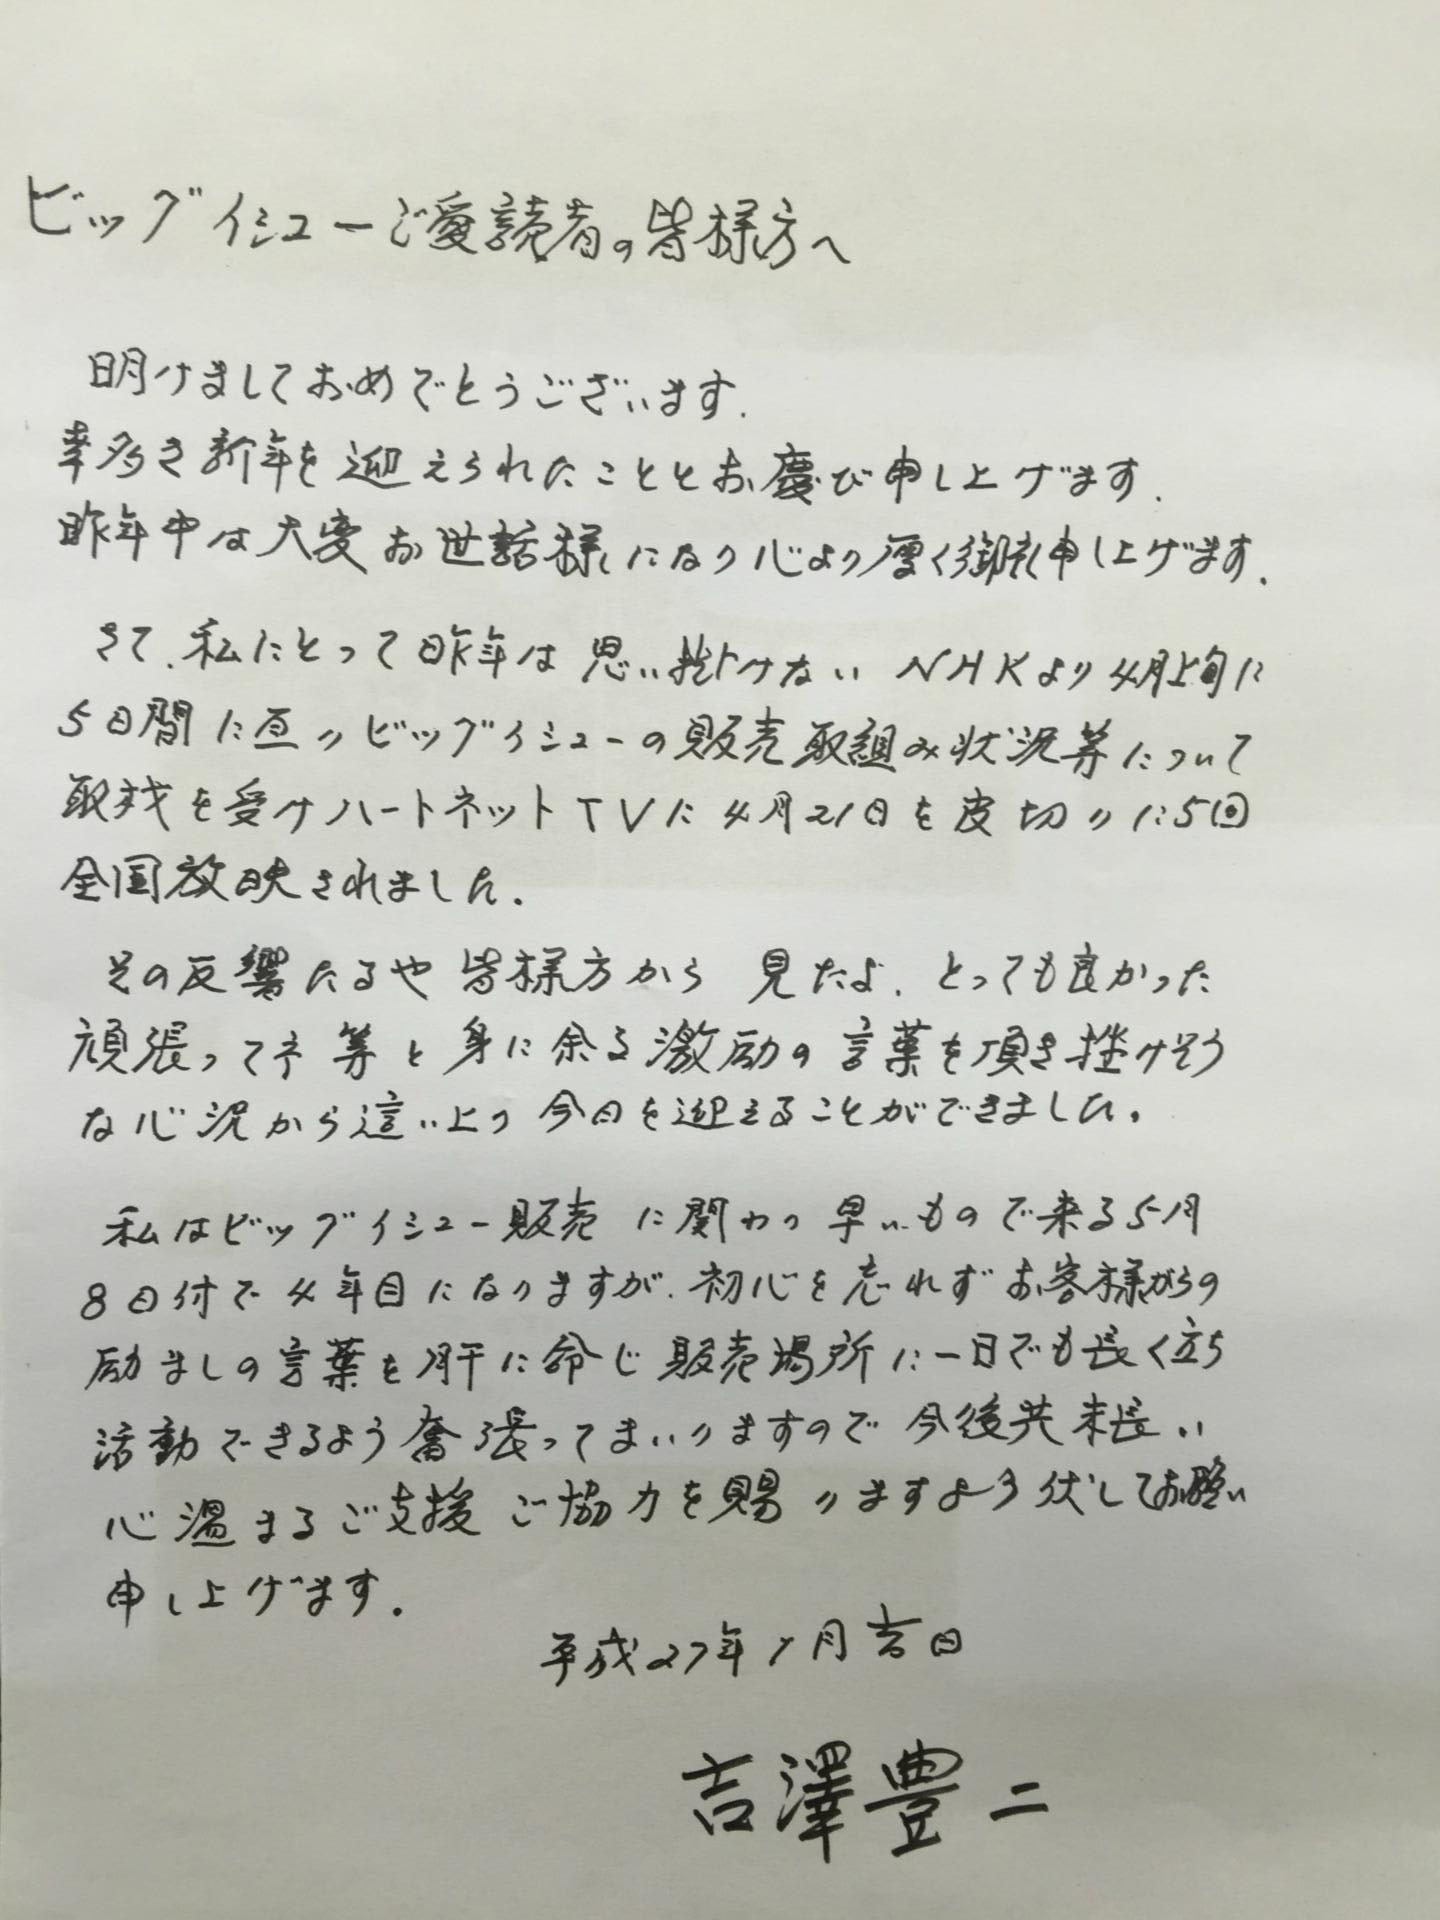 ビッグイシューご愛読者の皆様方へ
明けましておめでとうございます.
幸多き新年を迎えられたこととお慶び申し上げます.
昨年中は大変お世話様になり心より厚く御礼申し上げます.
さて、私にとって昨年は思い掛けない NHKより4月上旬に
5日間に亘りビッグイシューの販売取組み状況等について
取材を受けハートネットTVに4月21日を皮切りに5回
全国放映されました.
その反響たるや皆様方から 見たよ、とっても良かった
頑張ってネ等と身に余る激励の言葉を頂き挫けそう
な心況から這い上り今日を迎えることができました.
私はビッグイシュー販売に関わり早いもので来る5月
8日付で4年目になりますが、初心を忘れずお客様からの
励ましの言葉を肝に命じ販売場所に一日でも長く立ち
活動できるよう奮張ってまいりますので今後共末長い
心温まるご支援ご協力を賜りますよう伏してお願い
申し上げます.
平成27年1月吉日
吉澤豊二